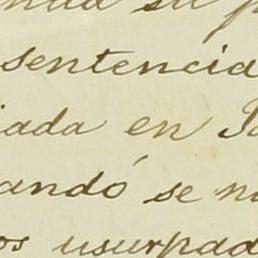 su
sentencia
iada en
andó se
os usurpad